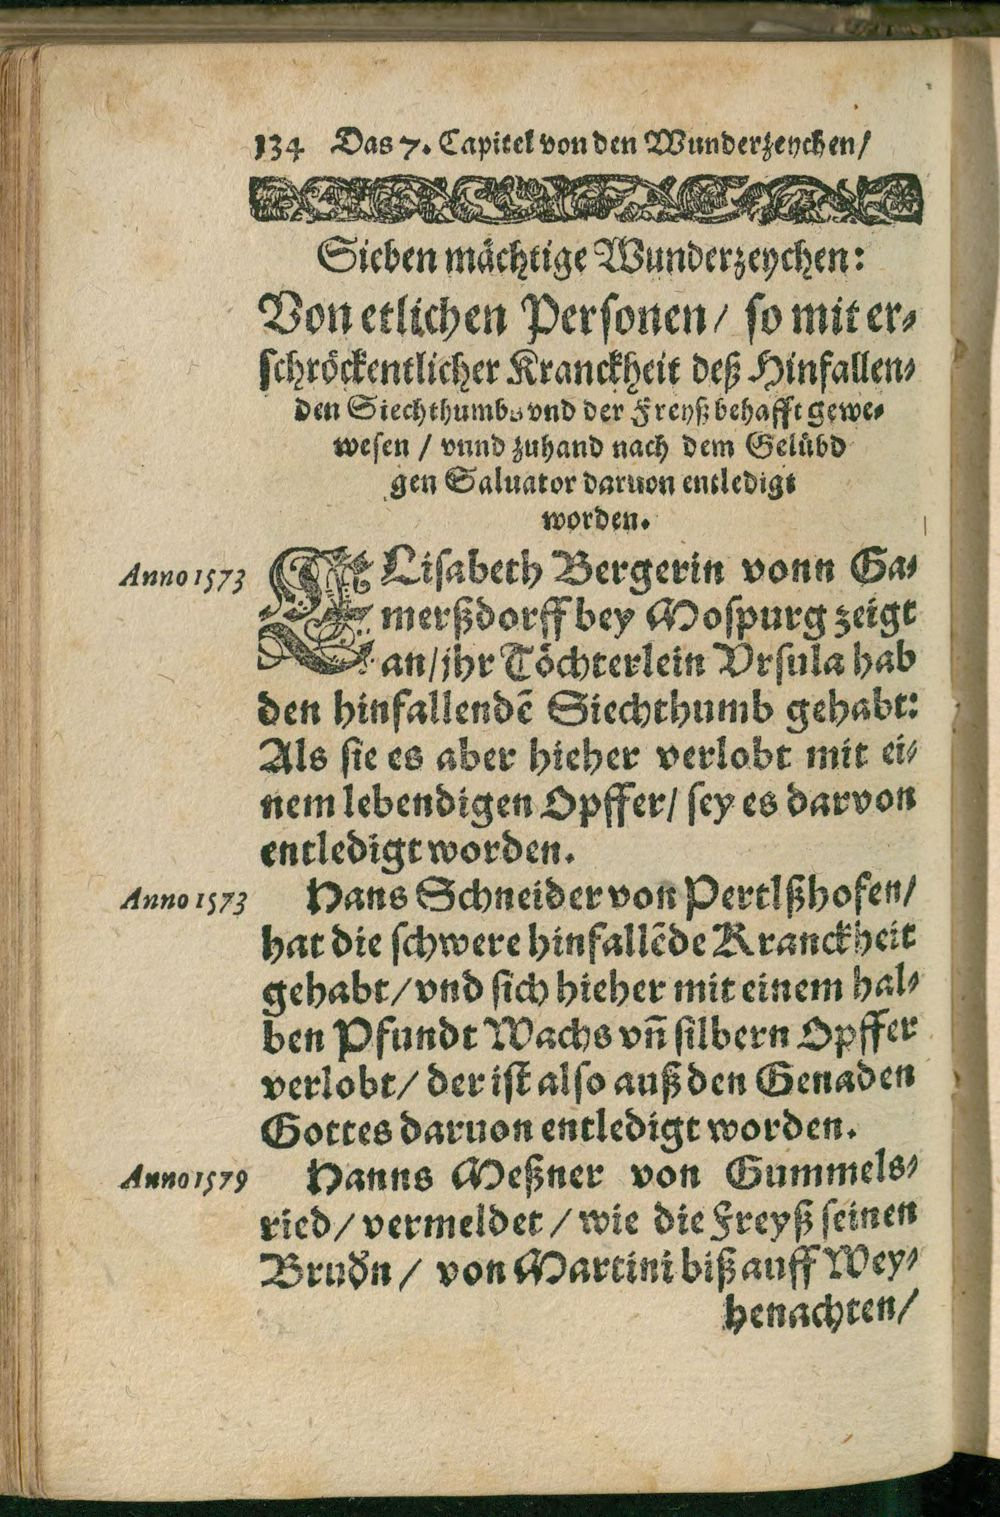 134 Das 7. Capitel von den Wunderzeychen/
Sieben mächtige Wunderzeychen:
Von etlichen Personen / so mit er-
schröckentlicher Kranckheit deß Hinfallen-
den Siechthumbs vnd der Freyß behafft gewe-
wesen / vnnd zuhand nach dem Gelübd
gen Saluator daruon entledigt
worden.
Anno 1573 ELisabeth Bergerin vonn Ga-
merßdorff bey Mospurg zeigt
an/jhr Töchterlein Vrsula hab
den hinfallendē Siechthumb gehabt:
Als sie es aber hieher verlobt mit ei-
nem lebendigen Opffer/ sey es darvon
entledigt worden.
Anno 1573 Hans Schneider von Pertlßhofen/
hat die schwere hinfallēde Kranckheit
gehabt/vnd sich hieher mit einem hal-
ben Pfundt Wachs vn̄ silbern Opffer
verlobt/ der ist also auß den Genaden
Gottes daruon entledigt worden.
Anno 1579 Hanns Meßner von Gummels-
ried/vermeldet/wie die Freyß seinen
Brudn/ von Martini biß auff Wey-
henachten/